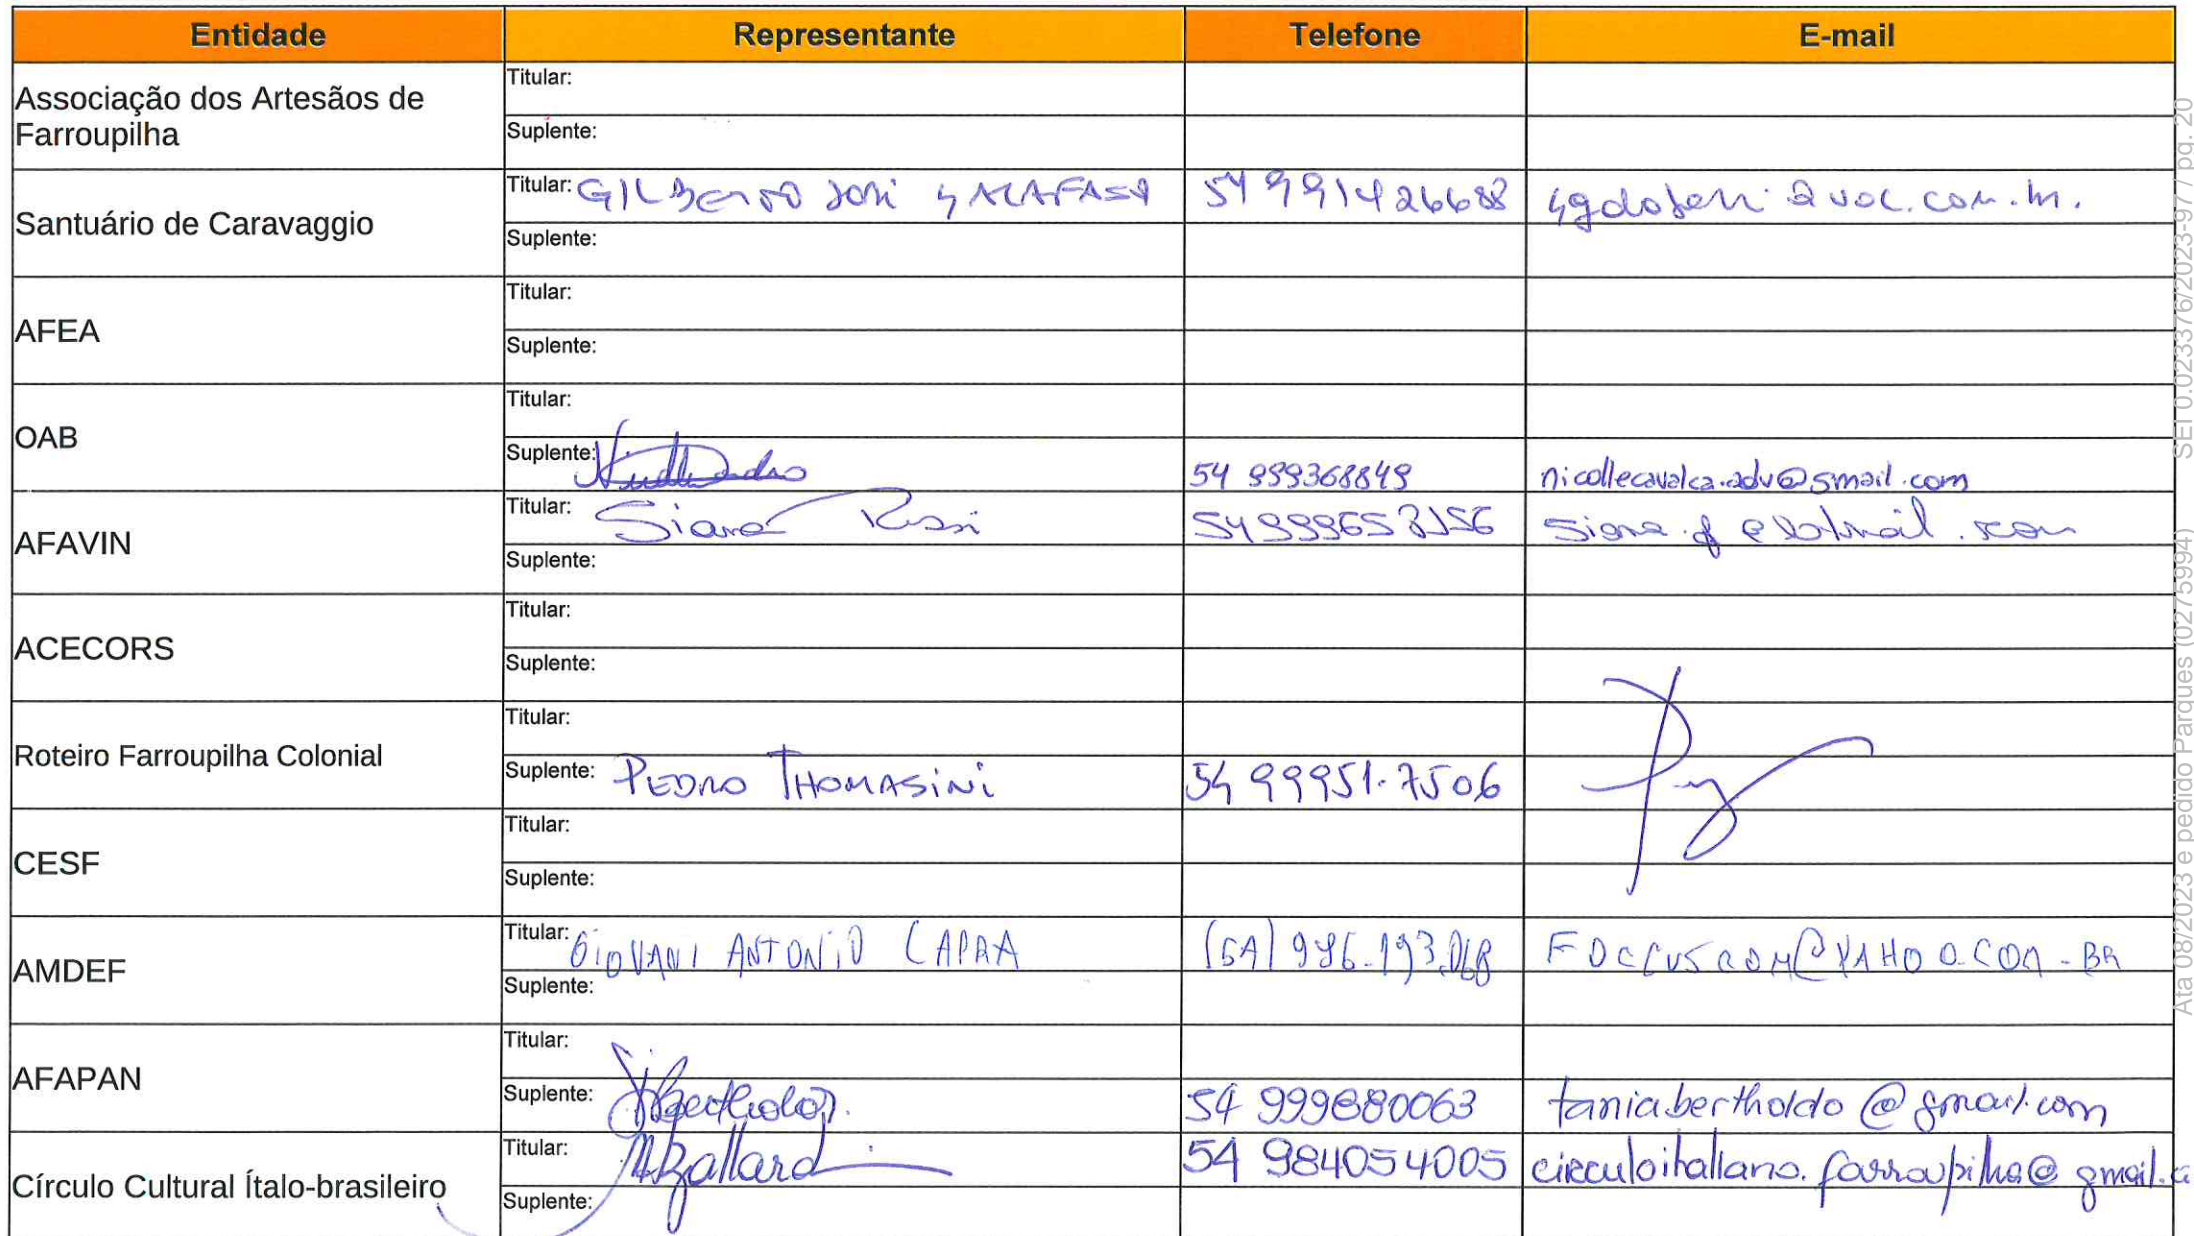 Entidade Representante Telefone E-mail
Associação dos Artesãos de Farroupilha
Titular:
Suplente:
Santuário de Caravaggio
Titular: GILBERTO JOSÉ 54 991426688
Suplente:
AFEA
Titular:
Suplente:
OAB
Titular:
Suplente: 54 999368849 nicollecavalca.adv@gmail.com
AFAVIN
Titular: Rossi
Suplente:
ACECORS
Titular:
Suplente:
Roteiro Farroupilha Colonial
Titular:
Suplente: PEDRO THOMASINI 54 99951-7506
CESF
Titular:
Suplente:
AMDEF
Titular: GIOVANI ANTONIO CAPRA (54) 996.193.068 FOCCUSCOM@YAHOO.COM.BR
Suplente:
AFAPAN
Titular:
Suplente: TBertholdo 54 999880063 taniabertholdo@gmail.com
Círculo Cultural Ítalo-brasileiro
Titular: 54 984054005 circuloitaliano.farroupilha@gmail.c
Suplente:
SEI 0.023376/2023-97 / pg. 20
Ata 08/2023 e pedido Parques (0275994)